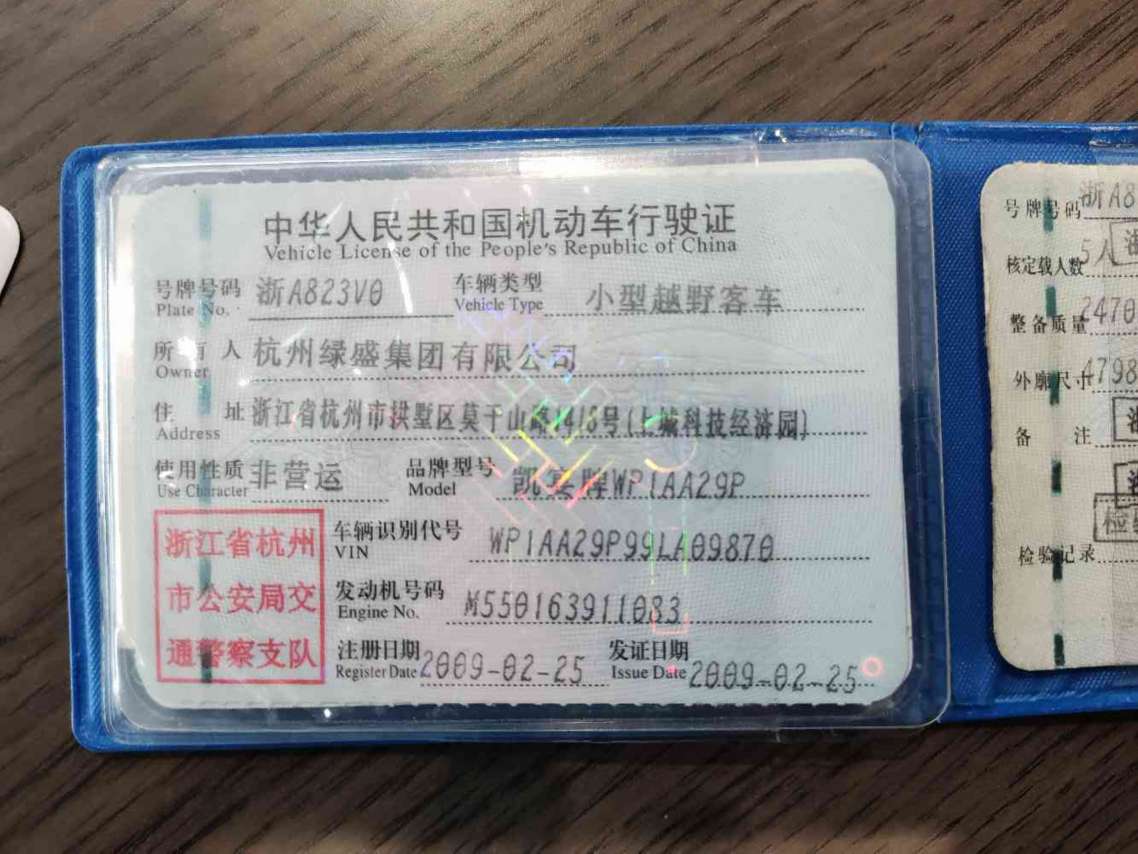 中华人民共和国机动车行驶证
Vehicle License of the People's Republic of China
号牌号码 浙A823V0 车辆类型 小型越野客车
Plate No. Vehicle Type
所有人 杭州绿盛集团有限公司
Owner
住址 浙江省杭州市拱墅区莫干山路1418号(上城科技经济园)
Address
使用性质 非营运 品牌型号 凯宾牌WP1AA29P
Use Character Model
浙江省杭州
市公安局交
通警察支队
车辆识别代号 WP1AA29P99LA09870
VIN
发动机号码 M550163911083
Engine No.
注册日期 2009-02-25 发证日期 2009-02-25
Register Date Issue Date
号牌号码 浙A8
核定载人数 5人
整备质量 2470
外廓尺寸 4798
备注
检验记录
检